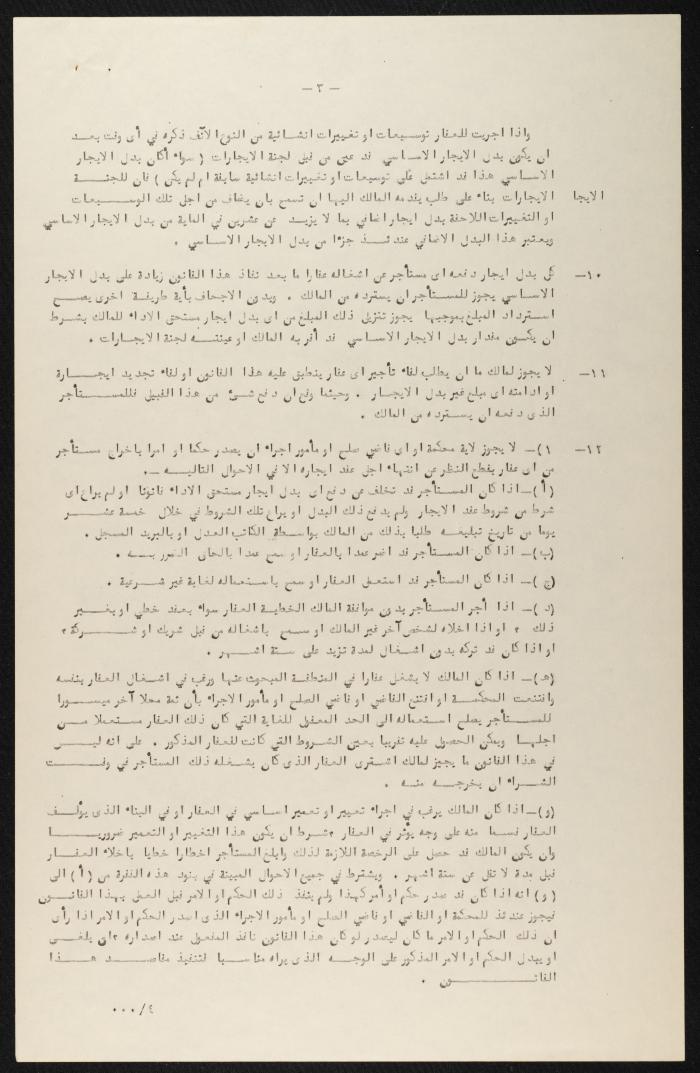 - ٣ -
واذا اجريت للعقار توسيعات او تغييرات انشائية من النوع الآنف ذكره في أى وقت بعد
ان يكون بدل الايجار الاساسي قد عين من قبل لجنة الايجارات ( سواء أكان بدل الايجار
الاساسي هذا قد اشتمل على توسيعات او تغييرات انشائية سابقة ام لم يكن ) فان للجنة
الايجا الايجارات بناء على طلب يقدمه المالك اليها ان تسمح بان يضاف من اجل تلك التوسيعات
او التغييرات اللاحقة بدل ايجار اضافي بما لا يزيد عن عشرين في الماية من بدل الايجار الاساسي
ويعتبر هذا البدل الاضافي عندئذ جزءا من بدل الايجار الاساسي .
١٠- كل بدل ايجار دفعه اى مستأجر عن اشغاله عقارا ما بعد نفاذ هذا القانون زيادة على بدل الايجار
الاساسي يجوز للمستأجر ان يسترده من المالك . وبدون الاجحاف بأية طريقة اخرى يصح
استرداد المبلغ بموجبها يجوز تنزيل ذلك المبلغ من اى بدل ايجار يستحق الاداء للمالك بشرط
ان يكون مقدار بدل الايجار الاساسي قد أقر به المالك او عينته لجنة الايجارات .
١١- لا يجوز لمالك ما ان يطلب لقاء تأجير اى عقار ينطبق عليه هذا القانون او لقاء تجديد ايجارة
او ادامته اى مبلغ غير بدل الايجار . وحيثما وقع ان دفع شئ من هذا القبيل فللمستأجر
الذى دفعه ان يسترده من المالك .
١٢- ١)- لا يجوز لاية محكمة او اى قاضي صلح او مأمور اجراء ان يصدر حكما او امرا باخراج مستأجر
من اى عقار بقطع النظر عن انتهاء اجل عقد ايجاره الا في الاحوال التالية :-
(أ)- اذا كان المستأجر قد تخلف عن دفع اى بدل ايجار مستحق الاداء قانونا او لم يراع اى
شرط من شروط عقد الايجار ولم يدفع ذلك البدل او يراع تلك الشروط في خلال خمسة عشر
يوما من تاريخ تبليغه طلبا بذلك من المالك بواسطة الكاتب العدل او بالبريد المسجل .
(ب)- اذا كان المستأجر قد اضر عمدا بالعقار او سمح عمدا بالحاق الضرر به .
(ج)- اذا كان المستأجر قد استعمل العقار او سمح باستعماله لغاية غير شرعية .
(د)- اذا أجر المستأجر بدون موافقة المالك الخطية العقار سواء بعقد خطي او بغير
ذلك ، او اذا اخلاه لشخص آخر غير المالك او سمح باشغاله من قبل شريك او شركة ،
او اذا كان قد تركه بدون اشغال لمدة تزيد على ستة اشهر .
(هـ)- اذا كان المالك لا يشغل عقارا في المنطقة المبحوث عنها ورغب في اشغال العقار بنفسه
واقتنعت المحكمة او اقتنع القاضي او قاضي الصلح او مأمور الاجراء بأن ثمة محلا آخر ميسورا
للمستأجر يصلح استعماله الى الحد المعقول للغاية التي كان ذلك العقار مستعملا من
اجلها ويمكن الحصول عليه تقريبا بعين الشروط التي كانت للعقار المذكور . على انه ليس
في هذا القانون ما يجيز لمالك اشترى العقار الذى كان يشغله ذلك المستأجر في وقت
الشراء ان يخرجه منه .
(و)- اذا كان المالك يرغب في اجراء تغيير او تعمير اساسي في العقار او في البناء الذى يؤلف
العقار قسما منه على وجه يؤثر في العقار ، شرط ان يكون هذا التغيير او التعمير ضروريا
وان يكون المالك قد حصل على الرخصة اللازمة لذلك وابلغ المستأجر اخطارا خطيا باخلاء العقار
قبل مدة لا تقل عن ستة اشهر . ويشترط في جميع الاحوال المبينة في بنود هذه الفقرة من (أ) الى
(و) انه اذا كان قد صدر حكم او أمر كهذا ولم ينفذ ذلك الحكم او الامر قبل العمل بهذا القانون
فيجوز عندئذ للمحكمة او القاضي او قاضي الصلح او مأمور الاجراء الذى اصدر الحكم او الامر اذا رأى
ان ذلك الحكم او الامر ما كان ليصدر لو كان هذا القانون نافذ المفعول عند اصداره ، اى يلغي
او يبدل الحكم او الامر المذكور على الوجه الذى يراه مناسبا لتنفيذ مقاصد هذا
القانون .
٠٠٠/٤